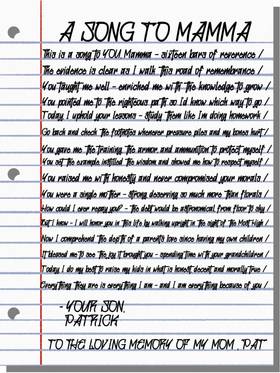 A SONG TO MAMMA
This is a song to YOU, Mamma - sixteen bars of reverence /
The evidence is clear as I walk this road of remembrance /
You taught me well - enriched me with the knowledge to grow /
You pointed me to the righteous path so I'd know which way to go /
Today I uphold your lessons - study them like I'm doing homework /
Go back and check the footnotes whenever pressure piles and my bones hurt /
You gave me the training, the armor and ammunition to protect myself /
You set the example, instilled the wisdom and showed me how to respect myself /
You raised me with honesty and never compromised your morals /
You were a single mother - strong, deserving so much more than florals /
How could I ever repay you? - the debt would be astronomical, from floor to sky /
But I know - I will honor you in this life by walking upright in the sight of the Most High /
Now I comprehend the depth of a parent's love since having my own children /
It blessed me to see the joy it brought you - spending time with your grandchildren /
Today I do my best to raise my kids in what is honest, decent and morally true /
Everything they are is everything I am - and I am everything because of you /
- YOUR SON,
PATRICK
TO THE LOVING MEMORY OF MY MOM, PAT